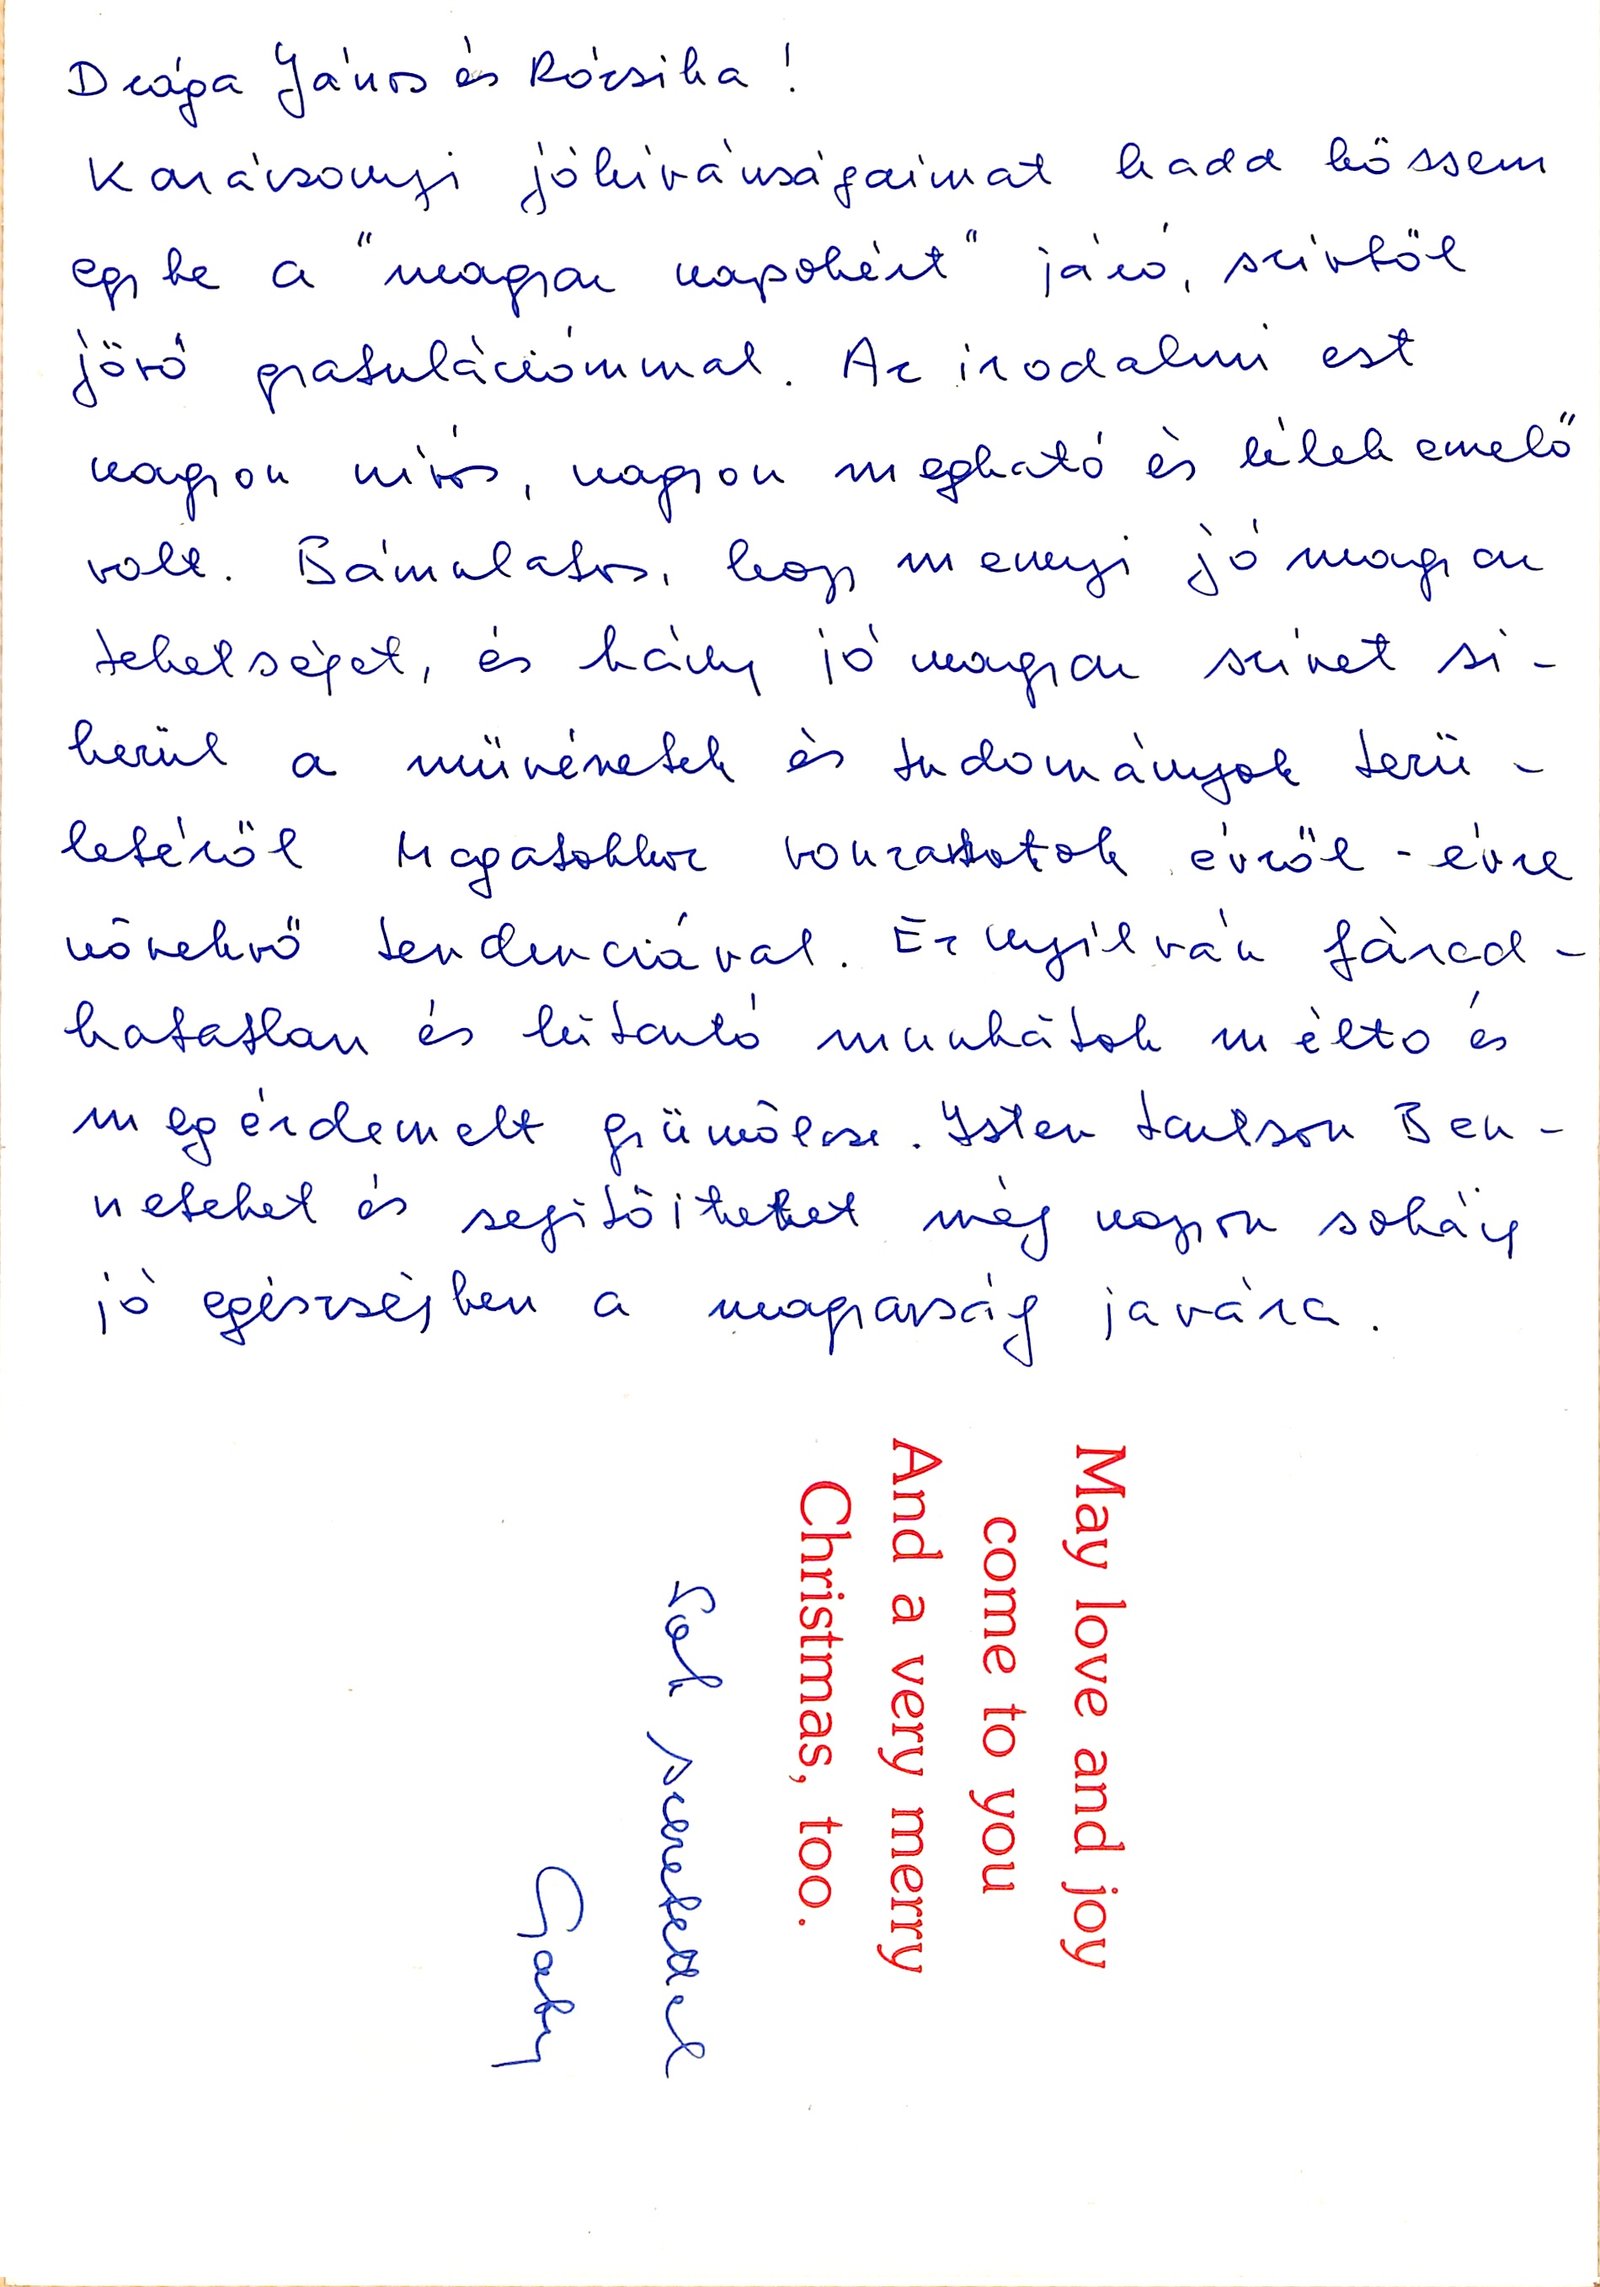 Drága János és Rózsika!
Karácsonyi jókívánságaimat hadd kössem
egybe a "magyar napokért" járó, szívből
jövő gratulációmmal. Az irodalmi est
nagyon nívós, nagyon megható és lélekemelő
volt. Bámulatos, hogy mennyi jó magyar
tehetséget, és hány jó magyar szívet si-
kerül a müvészetek és tudományok terü-
letéről Magatokhoz vonzanotok évről-évre
növekvő tendenciával. Ez nyilván fárad-
hatatlan és kitartó munkátok méltó és
megérdemelt gyümölcse. Isten tartson Ben-
neteket és segitőiteket még nagyon sokáig
jó egészségben a magyarság javára.
May love and joy
come to you
And a very merry
Christmas, too.
Sok szeretettel
Gaby